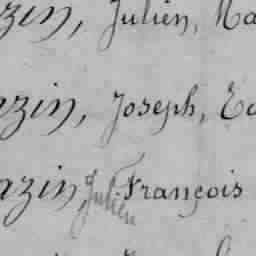 zin, Julien, Ma
azin, Joseph, Ed
azin, Julien François